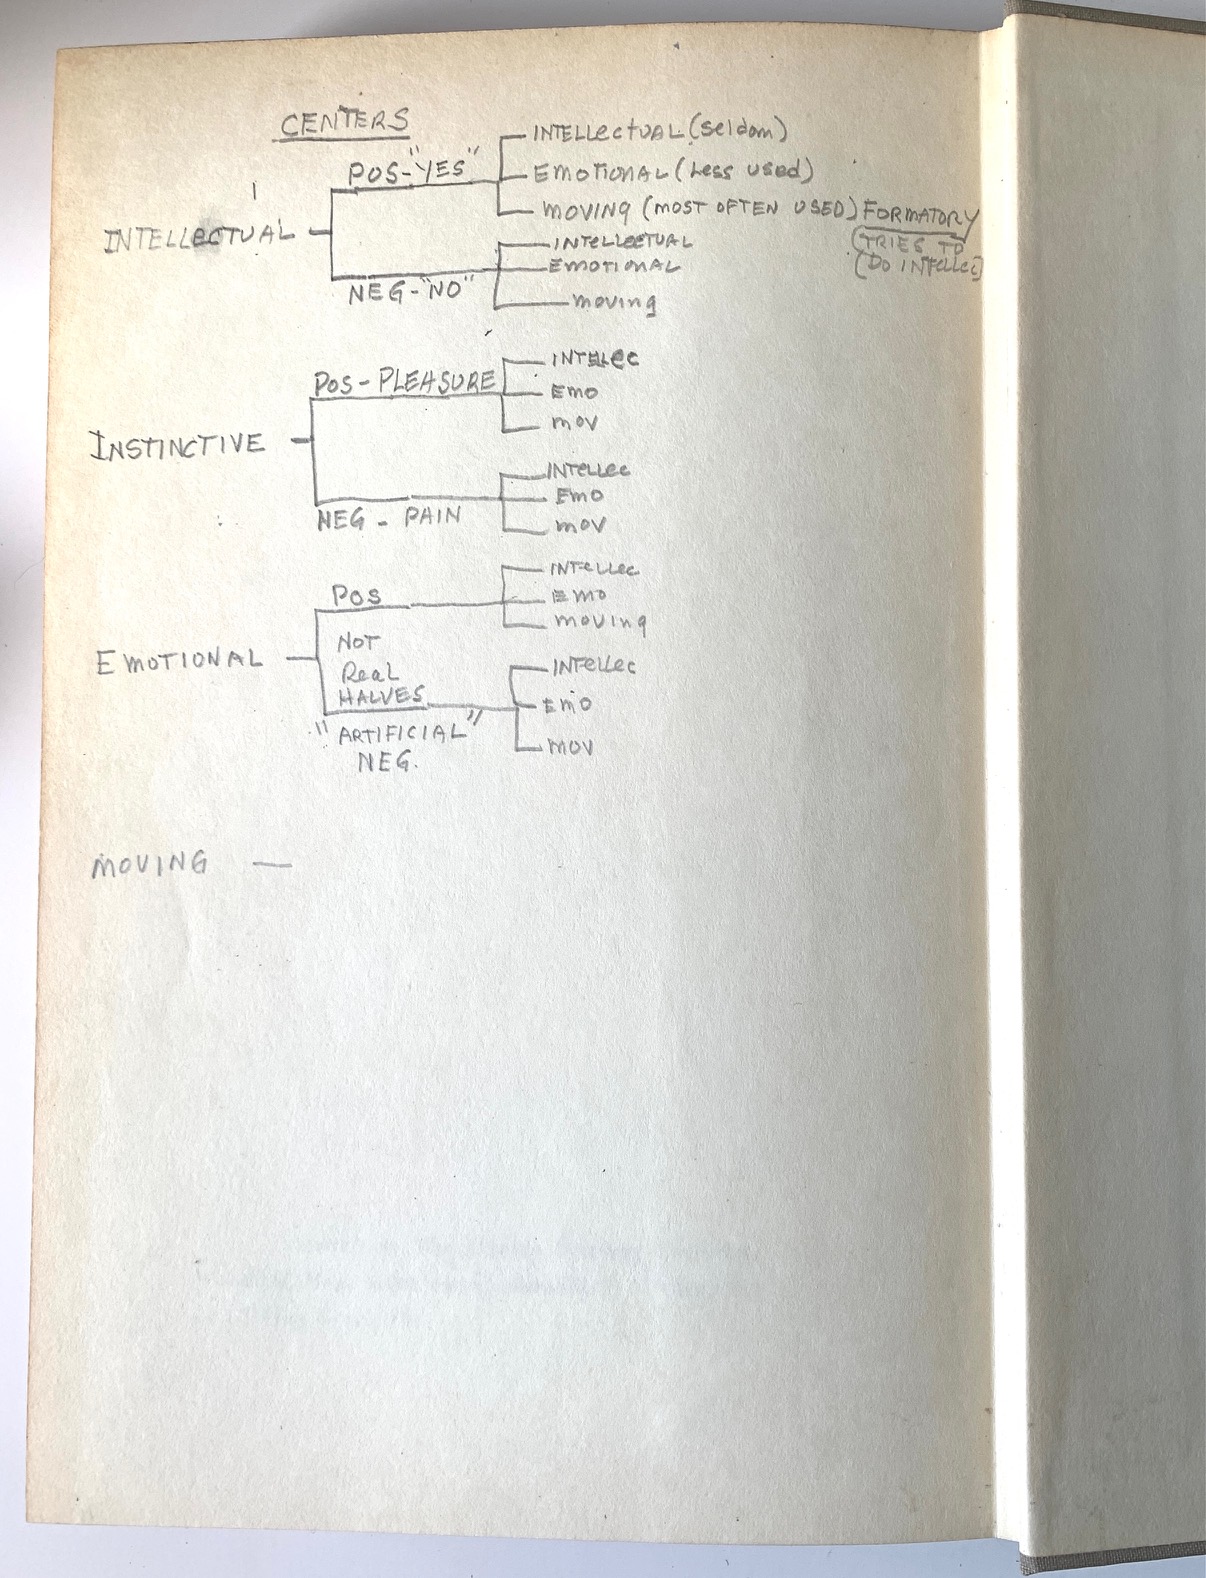 CENTERS
INTELLECTUAL
POS-"YES"
INTELLECTUAL (seldom)
EMOTIONAL (Less used)
MOVING (MOST OFTEN USED) FORMATORY
(TRIES TO
(DO INTELLEC)
NEG-"NO"
INTELLECTUAL
EMOTIONAL
moving
INSTINCTIVE
POS-PLEASURE
INTELLEC
EMO
MOV
NEG - PAIN
INTELLEC
EMO
MOV
EMOTIONAL
POS
INTELLEC
EMO
moving
NOT
Real
HALVES
"ARTIFICIAL"
NEG.
INTELLEC
EMO
MOV
MOVING —